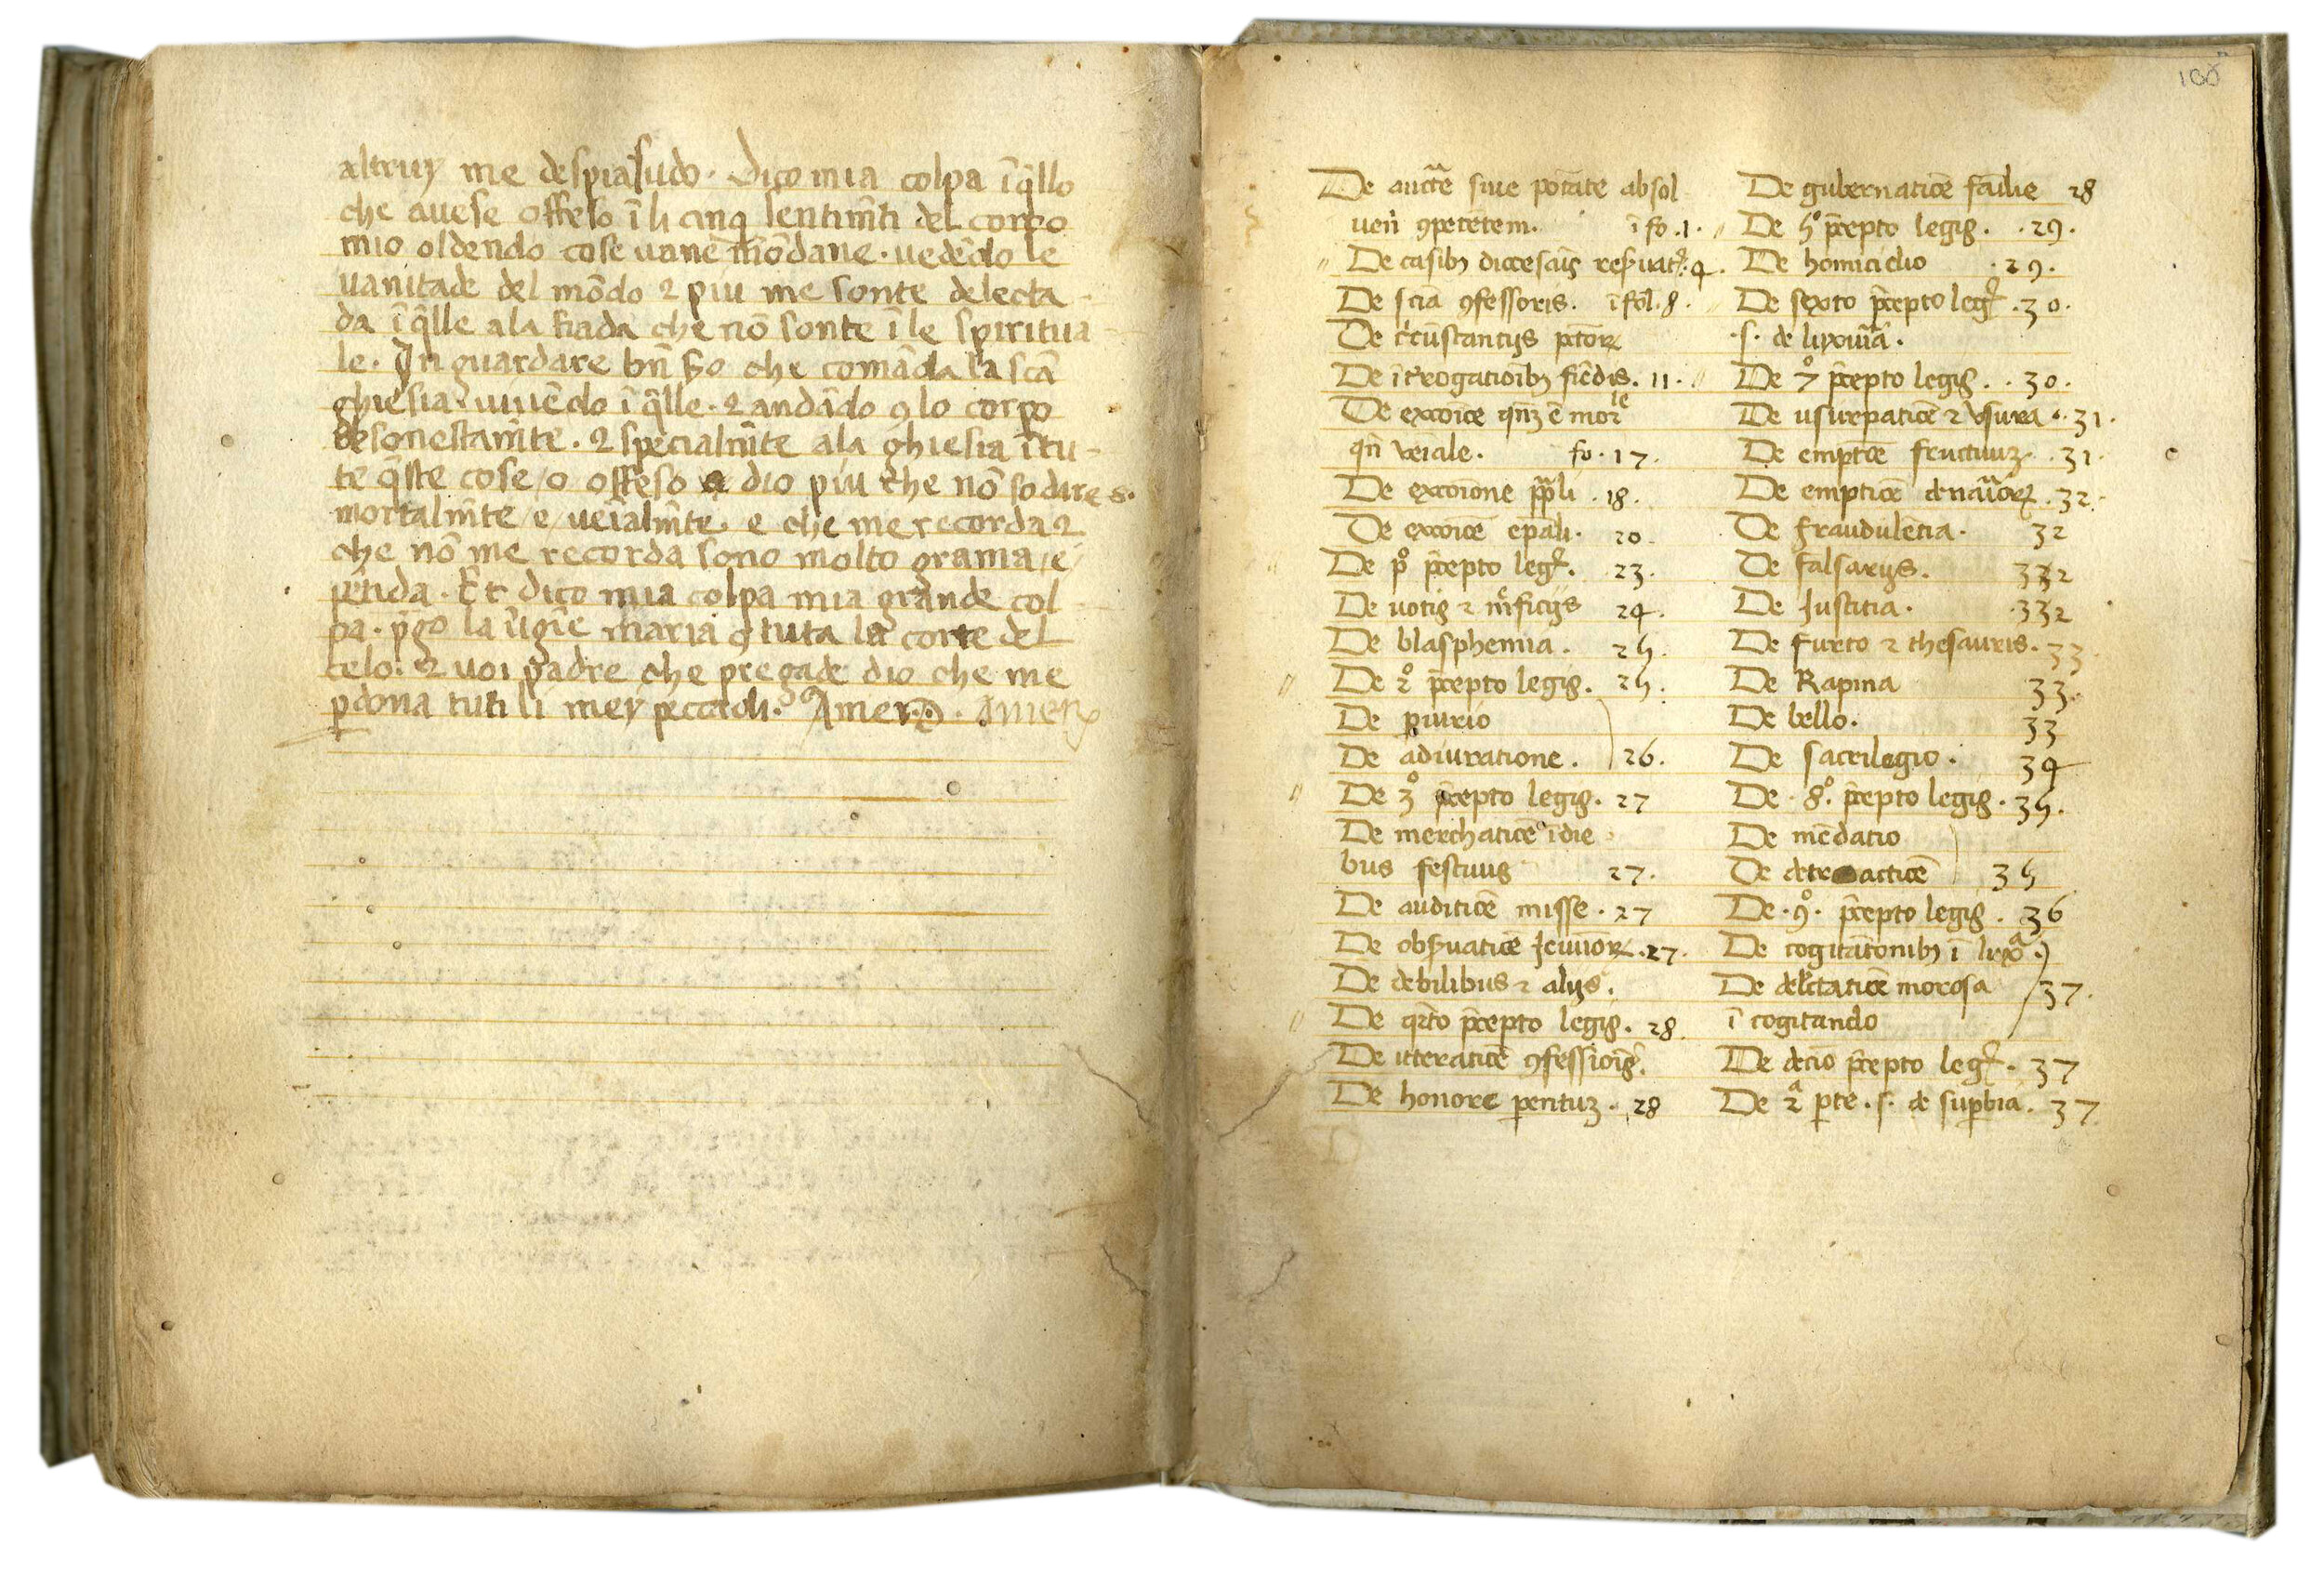 altruy me despiasudo. Dico mia colpa ĩ q̃llo
che auese offeso ĩ li cinq sentimẽti del corpo
mio oldendo cose uane mõdane. uedẽdo le
uanitade del mõdo ⁊ piu me sonte delecta
da ĩ q̃lle a la fiada che nõ sonte ĩ le spiritua
le. In guardare bñ che comãda la scã
ghiesia uiuẽdo ĩ q̃lle. ⁊ andãdo ꝯ lo corpo
desonestamẽte. ⁊ specialmẽte a la ghiesia ĩ tu
te q̃ste cose / o offeso a dio piu che nõ so dire
mortalmẽte / e / ueĩalmẽte. e che me recorda ⁊
che nõ me recorda sono molto grama / e
petida. Et dico mia colpa mia grande col
pa. p̃go la ũgĩe maria ꝯ tuta la corte del
celo. ⁊ uoi padre che pregade dio che me
ꝑdona tuti li mey peccati. Amen. Amen
188
De auctẽ siue potãte absol
uen̄ ꝯpetẽtem. ĩ fo .1.
De casibꝫ diocesañ reſuat. 4.
De sciã ꝯfessoris. ĩ fol. 8.
De cĩcũstantijs pctoꝝ
De ĩt̃rogatioĩbꝫ fiẽdis. 11.
De excõice qñ ẽ morle
qñ ueĩale. fo. 17.
De excõione pp̃li .18.
De excõice ep̃ali. 20
De pº p̃cepto leg. 23.
De uotis ⁊ mficijs 24.
De blasphemia. 25.
De 2º p̃cepto legis. 25.
De ꝑiurio
De adiuratione. 26.
De 3º p̃cepto legis. 27
De merchaticẽ ĩ die
bus festiuis 27.
De auditicẽ misse. 27
De obs̃uaticẽ Jeiunioꝝ. 27.
De debilibus ⁊ alijs.
De qrto p̃cepto legis. 28
De itteraticẽ ꝯfessiõis.
De honore parentuꝫ. 28
De gubernaticẽ familie 28
De 5º p̃cepto legis. .29.
De homicidio .29.
De sexto p̃cepto leg .30.
.s. de luxuria.
De 7º p̃cepto legis. .30.
De usurpaticẽ ⁊ usura .31.
De emptõe fructuuꝫ. .31.
De empticẽ denarioꝝ .32.
De fraudulẽtia. 32
De falsarijs. 332
De Justitia. .332
De furto ⁊ thesauris. 33
De Rapina 33.
De bello. 33
De sacrilegio. 34
De .8º. p̃cepto legis. 35.
De mẽdatio
De detracticẽ 35
De .9º. p̃cepto legis. 36
De cogitatõnibꝫ ĩ luxª.
De delectaticẽ morosa 37.
ĩ cogitando
De decio p̃cepto leg. 37
De 2ª ꝑte .s. de suꝑbia. 37